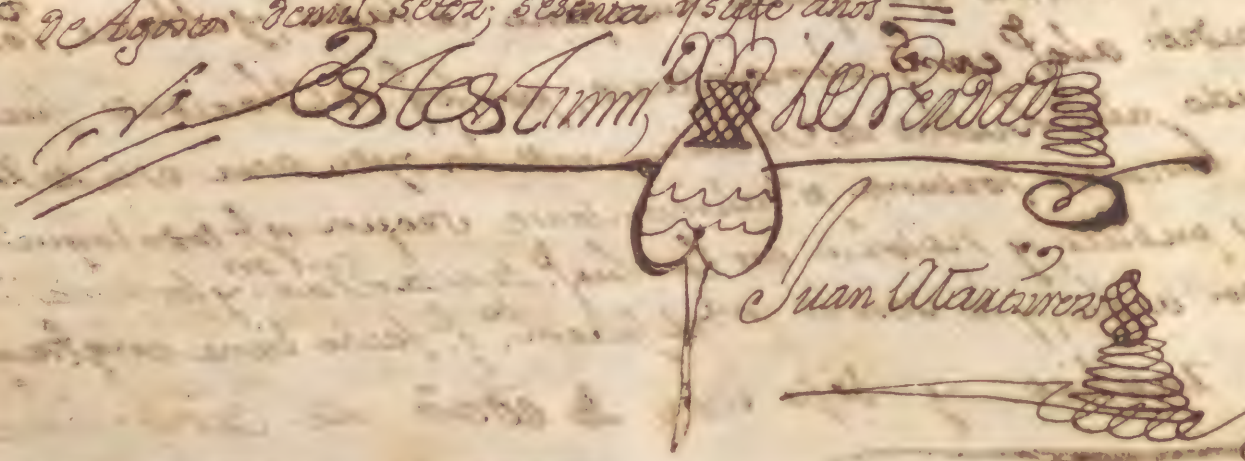 de Agosto de mil, setez, sesenta y siete años =
en testim, de verdad
Juan Martinez